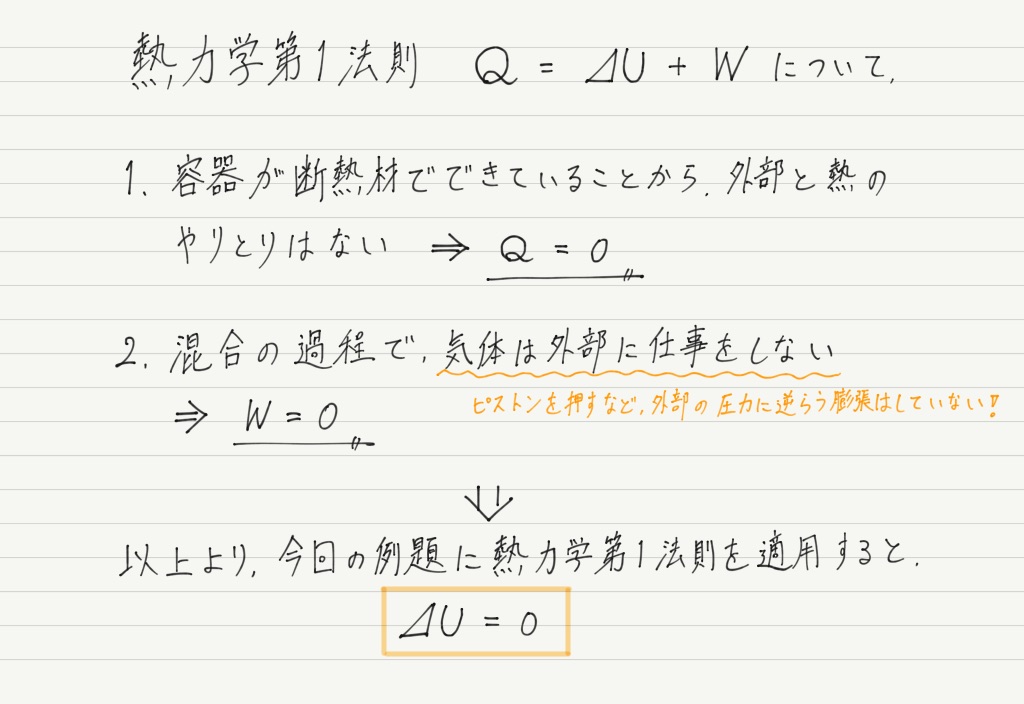 熱力学第1法則 Q = ΔU + W について,
1. 容器が断熱材でできていることから, 外部と熱の
やりとりはない ⇒ Q = 0
2. 混合の過程で, 気体は外部に仕事をしない
⇒ W = 0
ピストンを押すなど, 外部の圧力に逆らう膨張はしていない!
以上より, 今回の例題に熱力学第1法則を適用すると,
ΔU = 0